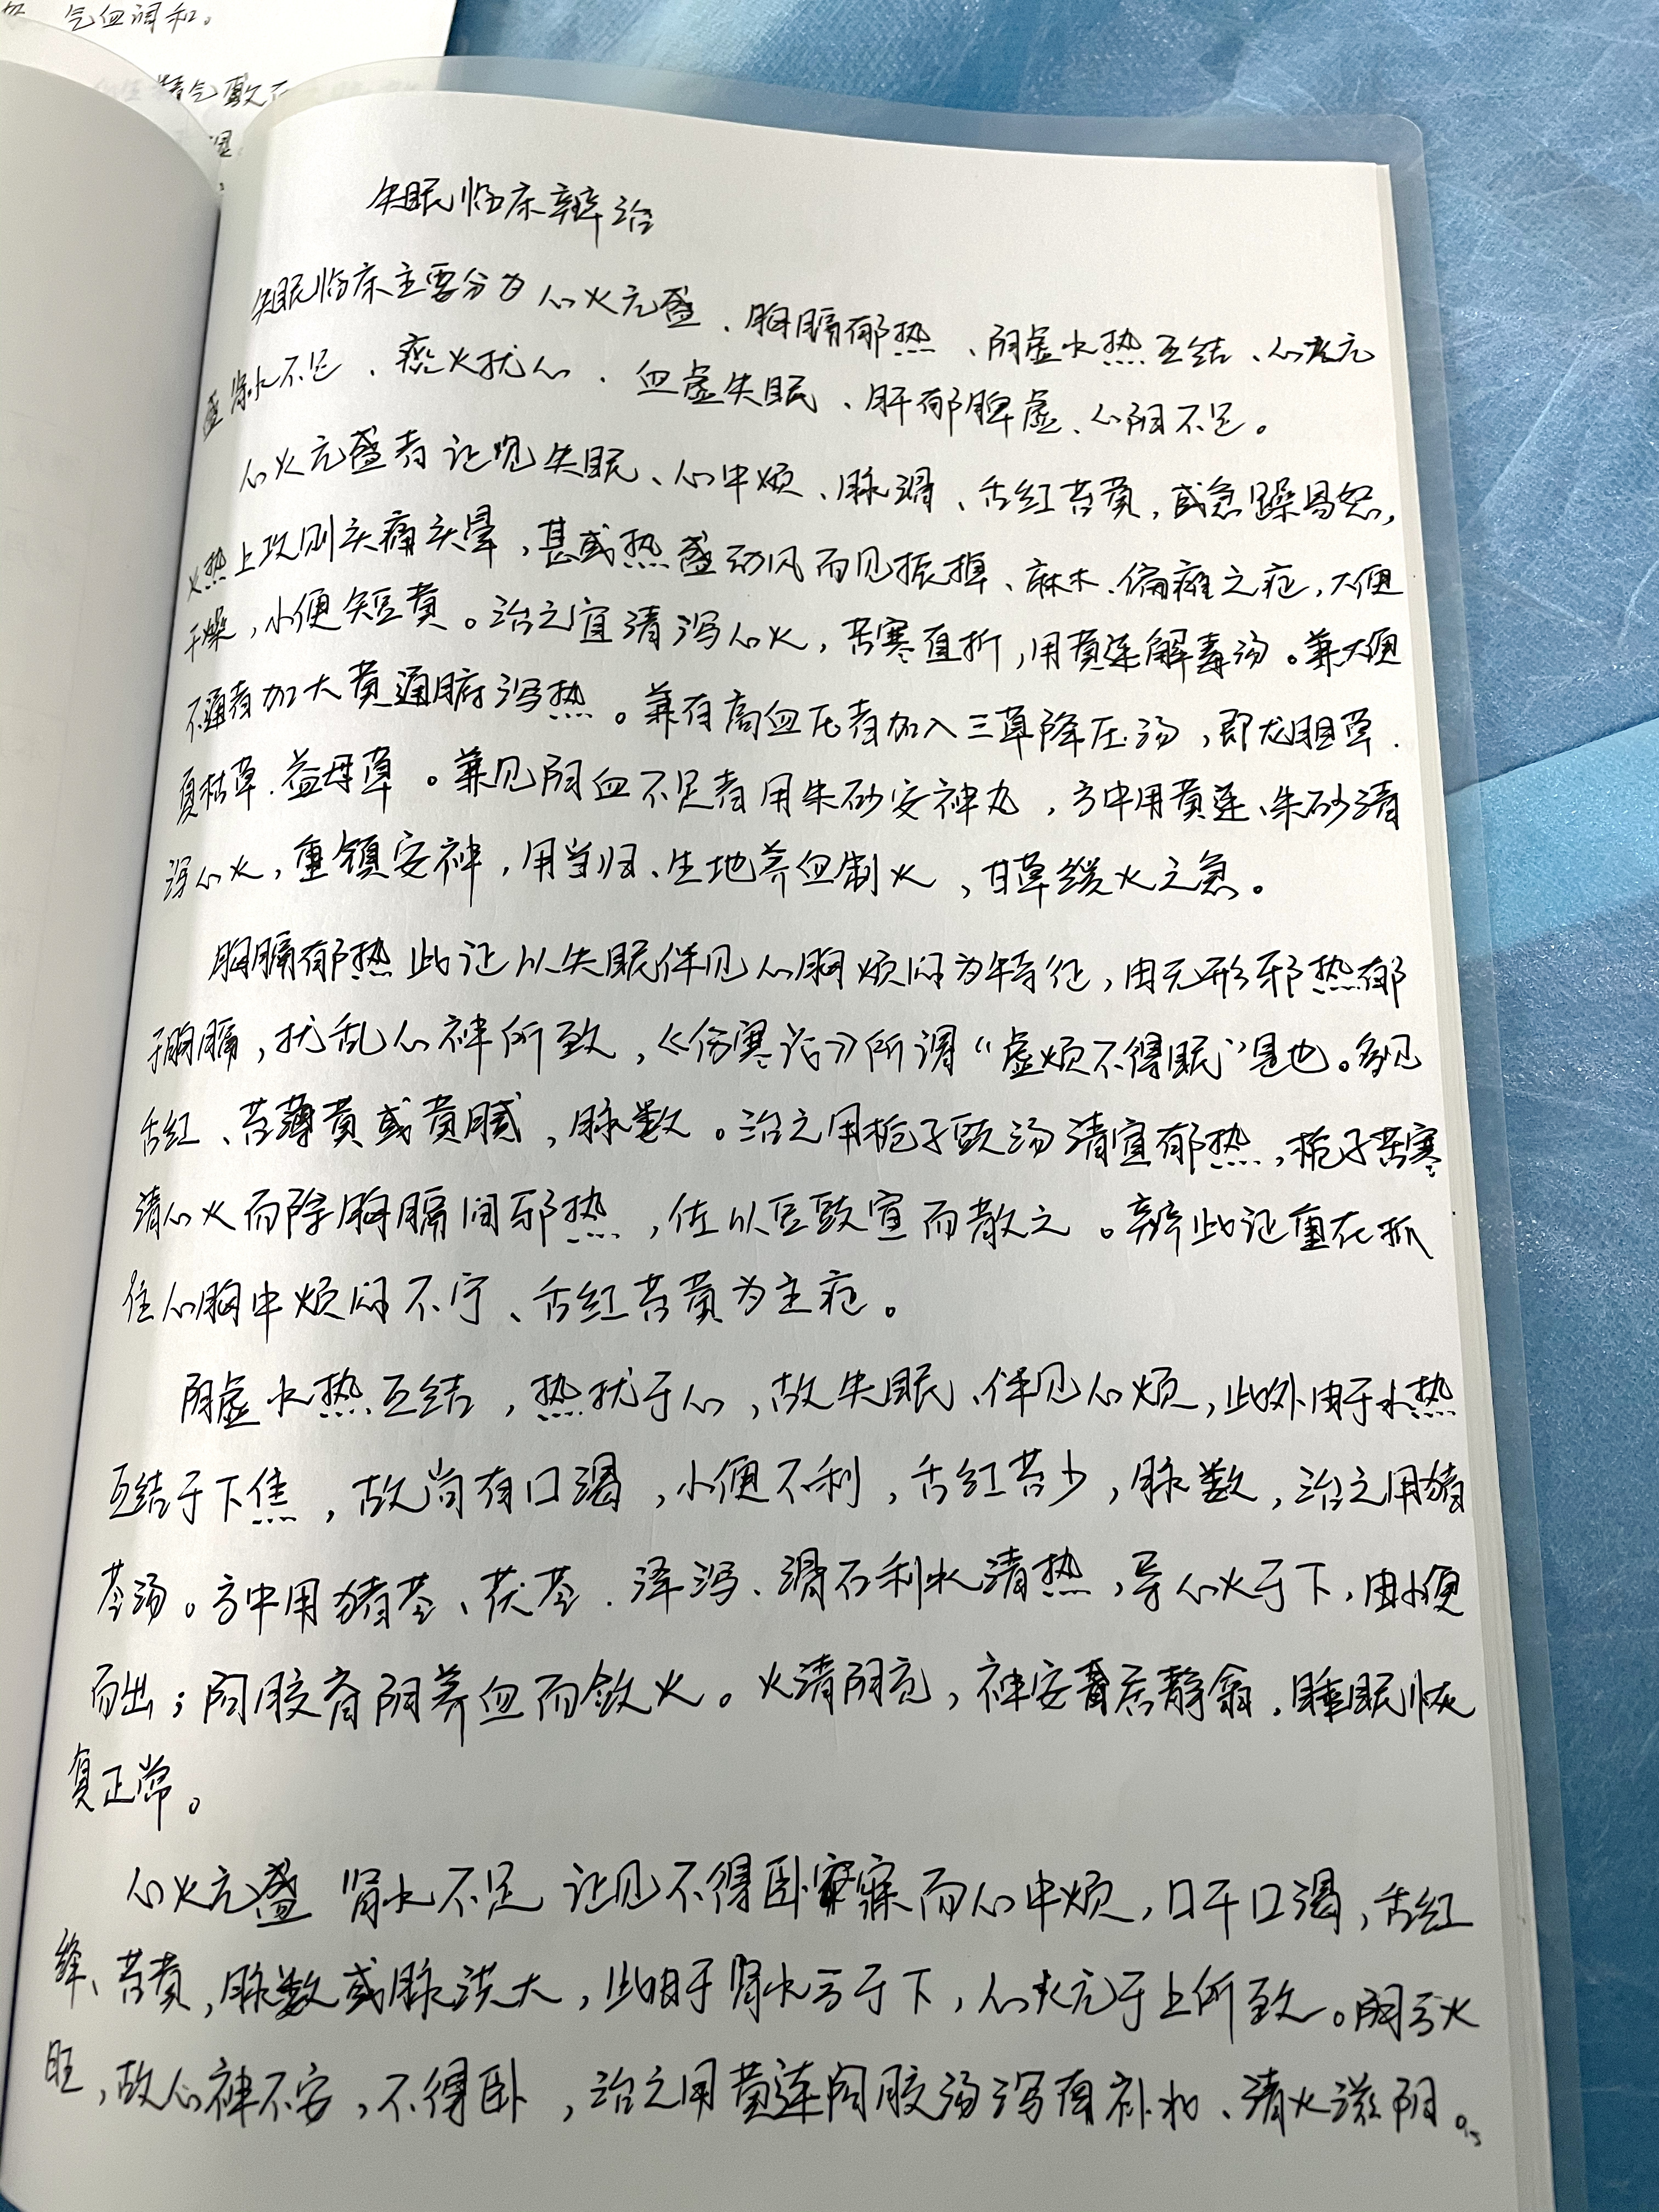 气血调和。
精气
失眠临床辨治
失眠临床主要分为心火亢盛、胸膈郁热、阴虚水热互结、心火亢
盛肾水不足、痰火扰心、血虚失眠、肝郁脾虚、心阴不足。
心火亢盛者证见失眠、心中烦、脉滑、舌红苔黄,或急躁易怒,
火热上攻则头痛头晕,甚或热盛动风而见振掉、麻木、偏瘫之症,大便
干燥,小便短黄。治之宜清泻心火,苦寒直折,用黄连解毒汤。兼大便
不通者加大黄通腑泻热。兼有高血压者加入三草降压汤,即龙胆草、
夏枯草、益母草。兼见阴血不足者用朱砂安神丸,方中用黄连、朱砂清
泻心火,重镇安神,用当归、生地养血制火,甘草缓火之急。
胸膈郁热此证以失眠伴见心胸烦闷为特征,由无形邪热郁
于胸膈,扰乱心神所致,《伤寒论》所谓“虚烦不得眠”是也。多见
舌红、苔薄黄或黄腻,脉数。治之用栀子豉汤清宣郁热,栀子苦寒
清心火而除胸膈间邪热,佐以豆豉宣而散之。辨此证重在抓
住心胸中烦闷不宁、舌红苔黄为主症。
阴虚水热互结,热扰于心,故失眠、伴见心烦,此外由于水热
互结于下焦,故尚有口渴,小便不利,舌红苔少,脉数,治之用猪
苓汤。方中用猪苓、茯苓、泽泻、滑石利水清热,导心火于下,由小便
而出;阿胶育阴养血而敛火。火清阴充,神安居静翕,睡眠恢
复正常。
心火亢盛 肾水不足 证见不得卧寐而心中烦,口干口渴,舌红
绛、苔黄,脉数或脉洪大,此由于肾水亏于下,心火亢于上所致。阴亏火
旺,故心神不安,不得卧,治之用黄连阿胶汤泻南补北、清火滋阴。